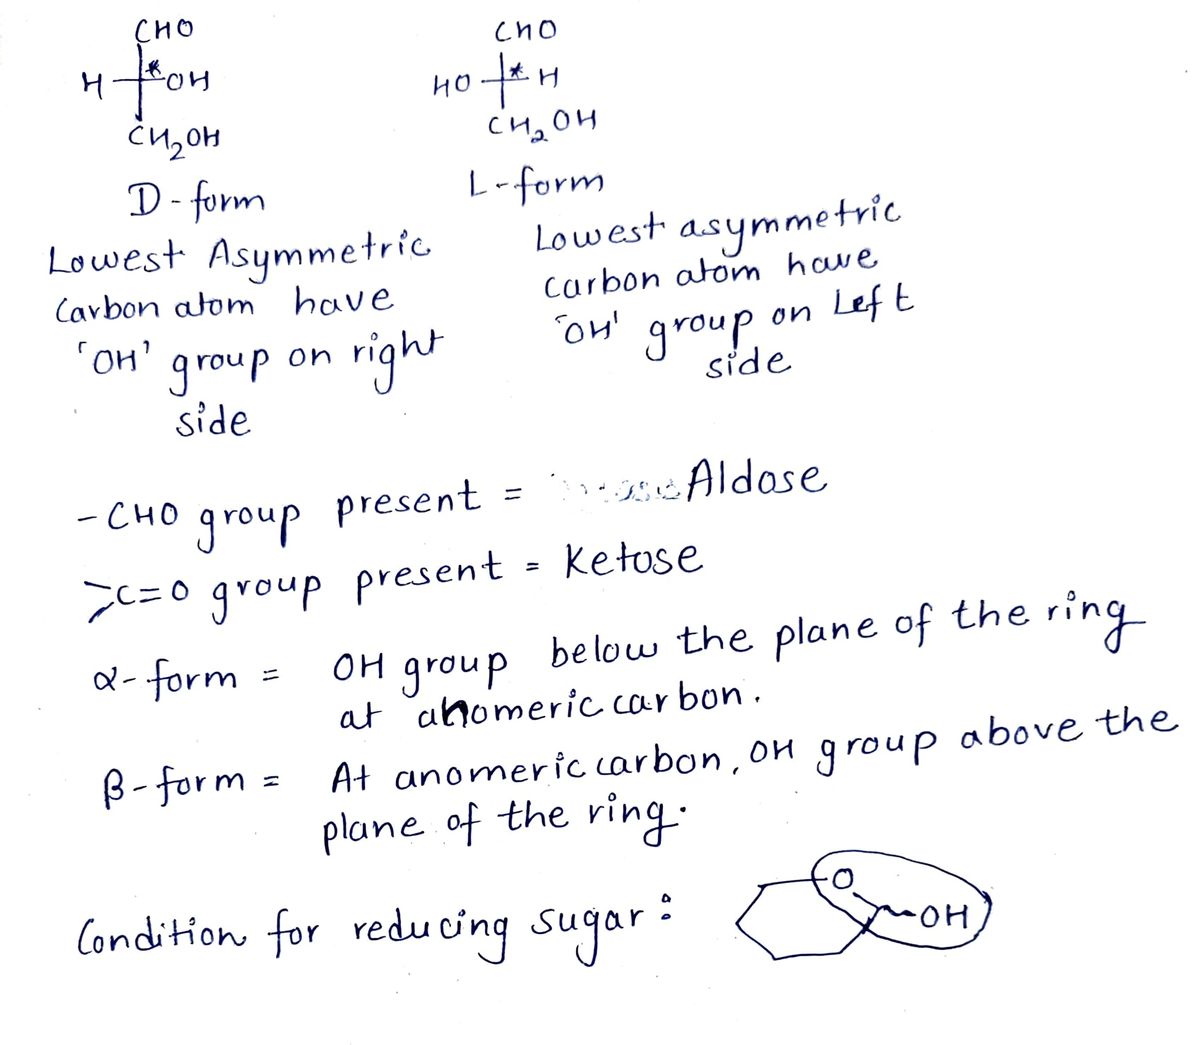 CHO
H * OH
CH2OH
D-form
Lowest Asymmetric
Carbon atom have
'OH' group on right
side
CHO
HO * H
CH2OH
L-form
Lowest asymmetric
carbon atom have
'OH' group on Left
side
-CHO group present = Aldose
>C=O group present = Ketose
α-form = OH group below the plane of the ring
at anomeric carbon.
β-form = At anomeric carbon, OH group above the
plane of the ring.
Condition for reducing sugar:
O
OH